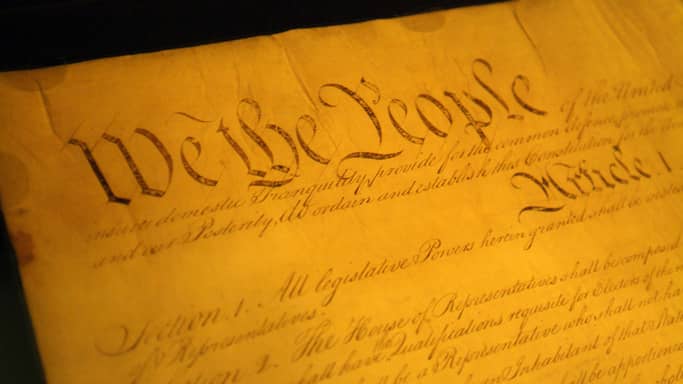 We the People of the United
insure domestic Tranquility, provide for the common defence, promote
and our Posterity, do ordain and establish this Constitution for the
Article. I
Section. 1. All legislative Powers herein granted shall be vested
of Representatives.
Section. 2. The House of Representatives shall be composed
shall have Qualifications requisite for Electors of the
shall be a Representative who shall not ha
an Inhabitant of that State
shall be apportion